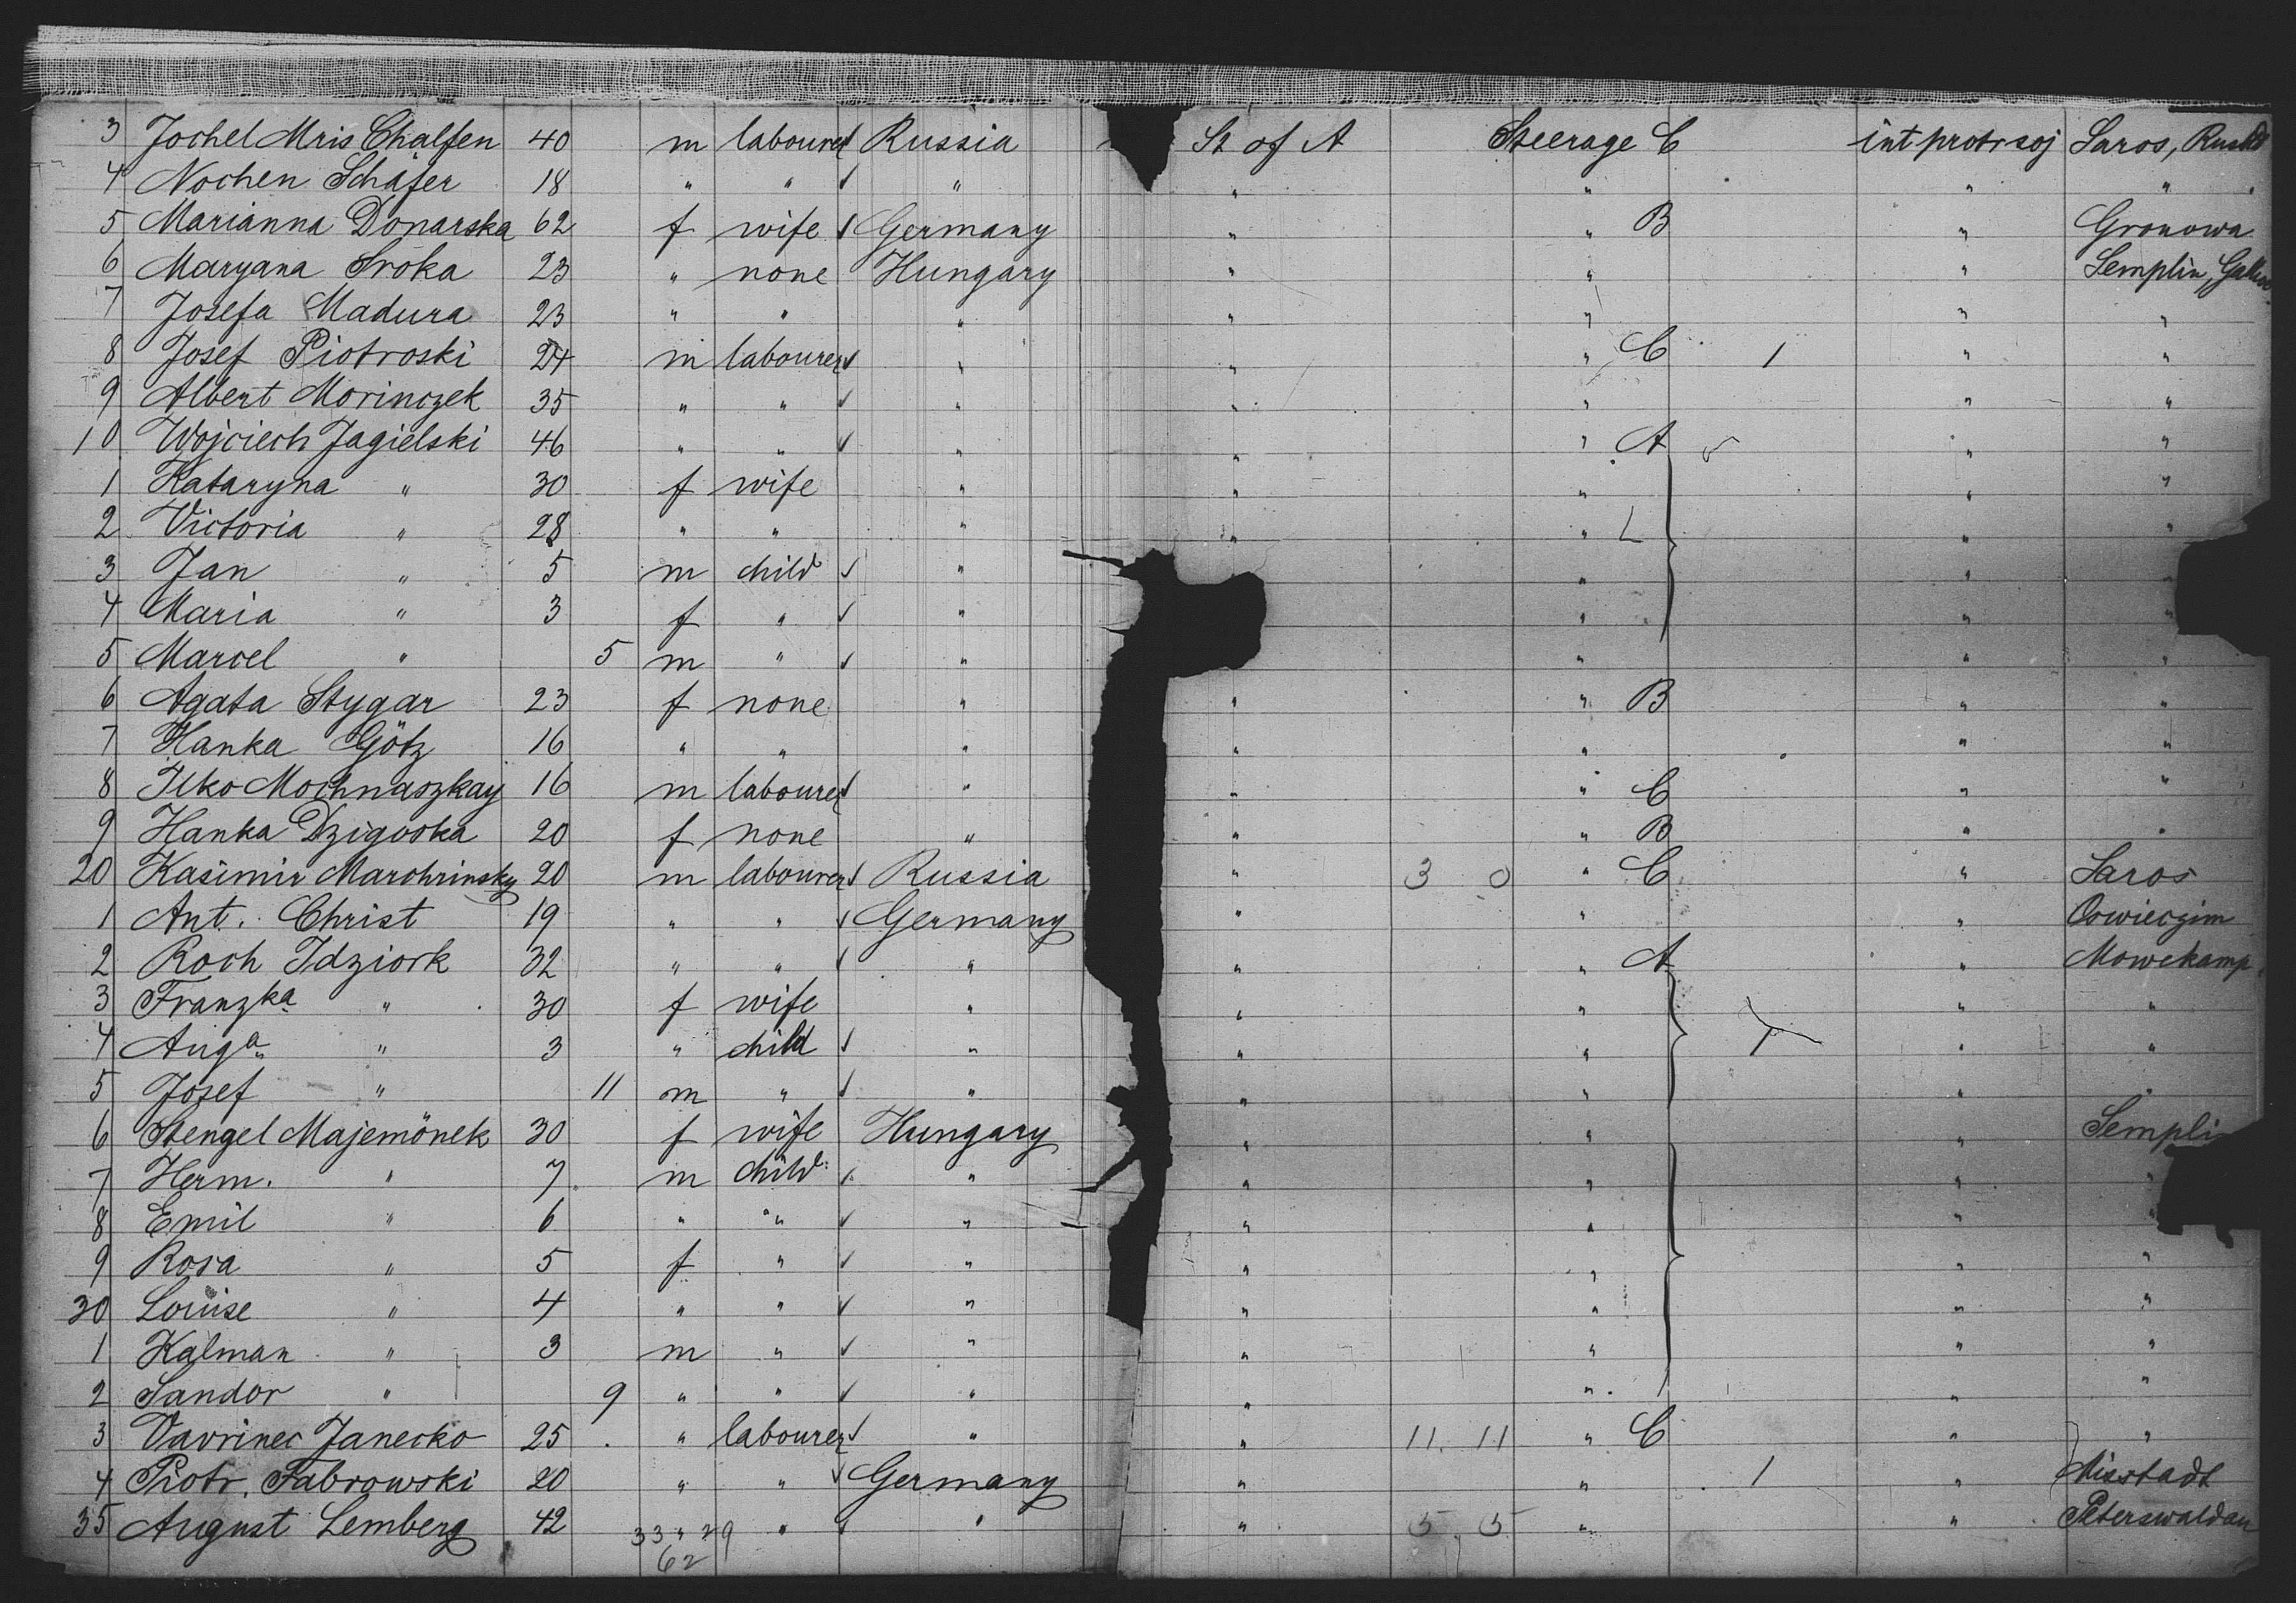 3 Jochel Mris Chalfen 40 m labourer ✓ Russia St of A Steerage C int protr soj Saros,
4 Nochen Schäfer 18 " " ✓ " " " " "
5 Marianna Donarska 62 f wife ✓ Germany " " B " Gronowa
6 Maryana Sroka 23 " none Hungary " " " Semplin,
7 Josefa Madura 23 " " " " " " "
8 Josef Piotroski 24 m labourer ✓ " " " C 1 " "
9 Albert Morinczek 35 " " ✓ " " " " "
10 Wojciech Jagielski 46 " " ✓ " " " A " "
1 Kataryna " 30 f wife " " " " "
2 Victoria " 28 " " " " " L " "
3 Jan " 5 m child ✓ " " " "
4 Maria " 3 f " ✓ " " " "
5 Marcel " 5 m " ✓ " " " "
6 Agata Stygar 23 f none " " " B " "
7 Hanka Götz 16 " " " " " " "
8 Ilko Mochnaszkay 16 m labourer ✓ " " " C " "
9 Hanka Dzigoska 20 f none " " " B " "
20 Kasimir Marchrinsky 20 m labourer ✓ Russia " 3 0 " C " Saros
1 Ant. Christ 19 " " ✓ Germany " " " Oswieczim
2 Roch Idziork 32 " " ✓ " " " A " Mowekamp
3 Franzka " 30 f wife " " " " "
4 Auga " 3 " child ✓ " " " " "
5 Josef " 11 m " ✓ " " " " "
6 Stengel Majemönek 30 f wife Hungary " " " Sempli
7 Herm. " 7 m child ✓ " " " " "
8 Emil " 6 " " ✓ " " " " "
9 Rosa " 5 f " ✓ " " " " "
30 Louise " 4 " " ✓ " " " " "
1 Kalman " 3 m " ✓ " " " " "
2 Sandor " 9 " " ✓ " " " " "
3 Vavrinec Janecko 25 " labourer ✓ " " 11. 11 " C " "
4 Piotr. Fabrowski 20 " " ✓ Germany " " 1 " Misstadt
35 August Lemberg 42 " " ✓ " " 5. 5. " " Peterswaldau
33 29
62